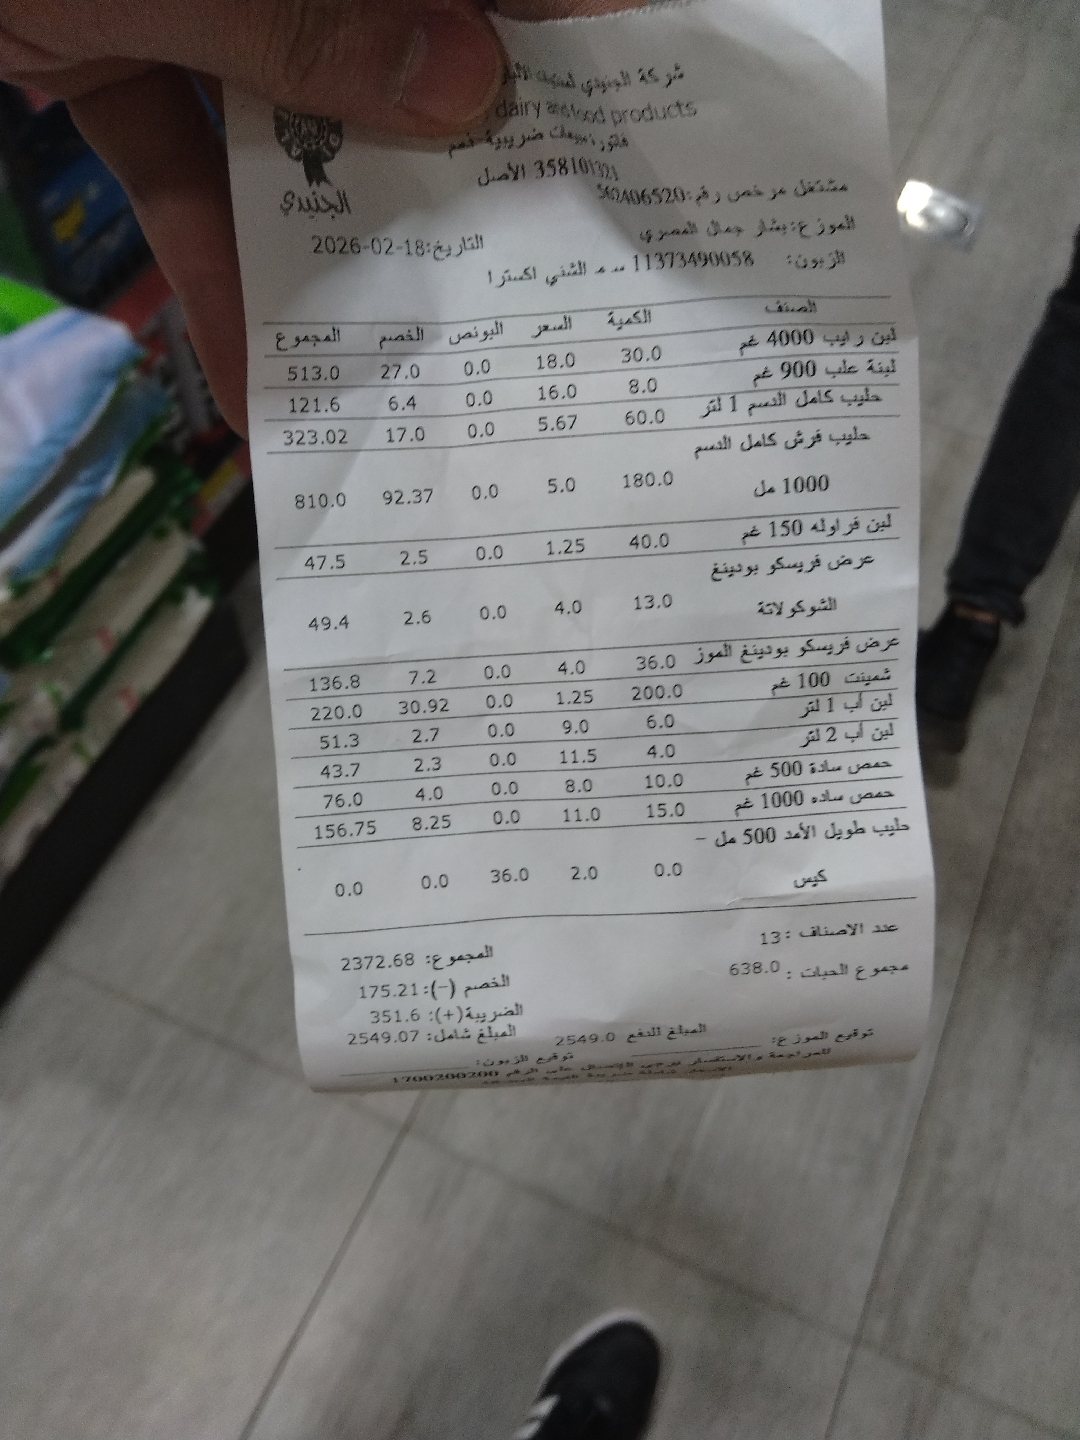 شركة الجنيدي لمنتجات الألبان
dairy and food products
فاتورة مبيعات ضريبية ذمم
358101321 الأصل
الجنيدي
مشتغل مرخص رقم: 562406520
الموزع: بشار جمال المصري
التاريخ: 2026-02-18
الزبون: 11373490058 س م الشني اكسترا
الصنف الكمية السعر البونص الخصم المجموع
لبن رايب 4000 غم 30.0 18.0 0.0 27.0 513.0
لبنة علب 900 غم 8.0 16.0 0.0 6.4 121.6
حليب كامل الدسم 1 لتر 60.0 5.67 0.0 17.0 323.02
حليب فرش كامل الدسم
1000 مل 180.0 5.0 0.0 92.37 810.0
لبن فراوله 150 غم 40.0 1.25 0.0 2.5 47.5
عرض فريسكو بودينغ
الشوكولاتة 13.0 4.0 0.0 2.6 49.4
عرض فريسكو بودينغ الموز 36.0 4.0 0.0 7.2 136.8
شمينت 100 غم 200.0 1.25 0.0 30.92 220.0
لبن أب 1 لتر 6.0 9.0 0.0 2.7 51.3
لبن أب 2 لتر 4.0 11.5 0.0 2.3 43.7
حمص سادة 500 غم 10.0 8.0 0.0 4.0 76.0
حمص ساده 1000 غم 15.0 11.0 0.0 8.25 156.75
حليب طويل الأمد 500 مل -
كيس 0.0 2.0 36.0 0.0 0.0
عدد الاصناف : 13
المجموع: 2372.68
مجموع الحبات : 638.0
الخصم (-): 175.21
الضريبة(+): 351.6
المبلغ شامل: 2549.07
المبلغ للدفع 2549.0
توقيع الموزع:
توقيع الزبون:
للمراجعة والاستفسار يرجى الإتصال على الرقم 1700200200